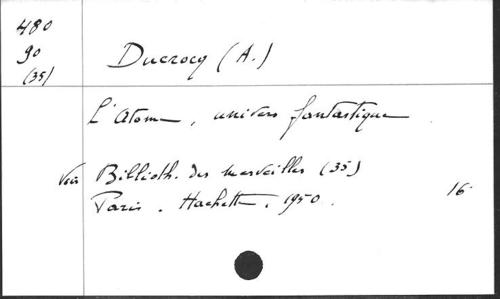 480
90
(35)
Ducrocq (A.)
L'atome, univers fantastique.
Voir Biblioth. des merveilles (35)
Paris. Hachette. 1950.
16